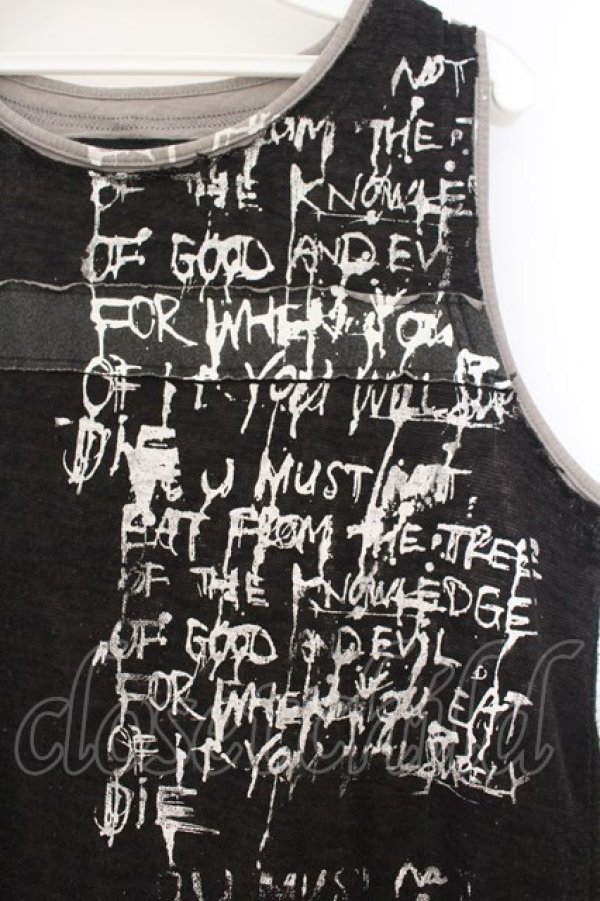 NOT
FROM THE T
OF THE KNOWLE
OF GOOD AND EV
FOR WHEN YOU
OF IT YOU WILL
DIE
U MUST NOT
EAT FROM THE TREE
OF THE KNOWLEDGE
OF GOOD AND EVIL
FOR WHEN YOU EAT
OF IT YOU SURELY
DIE
YOU MUST NOT
closet child